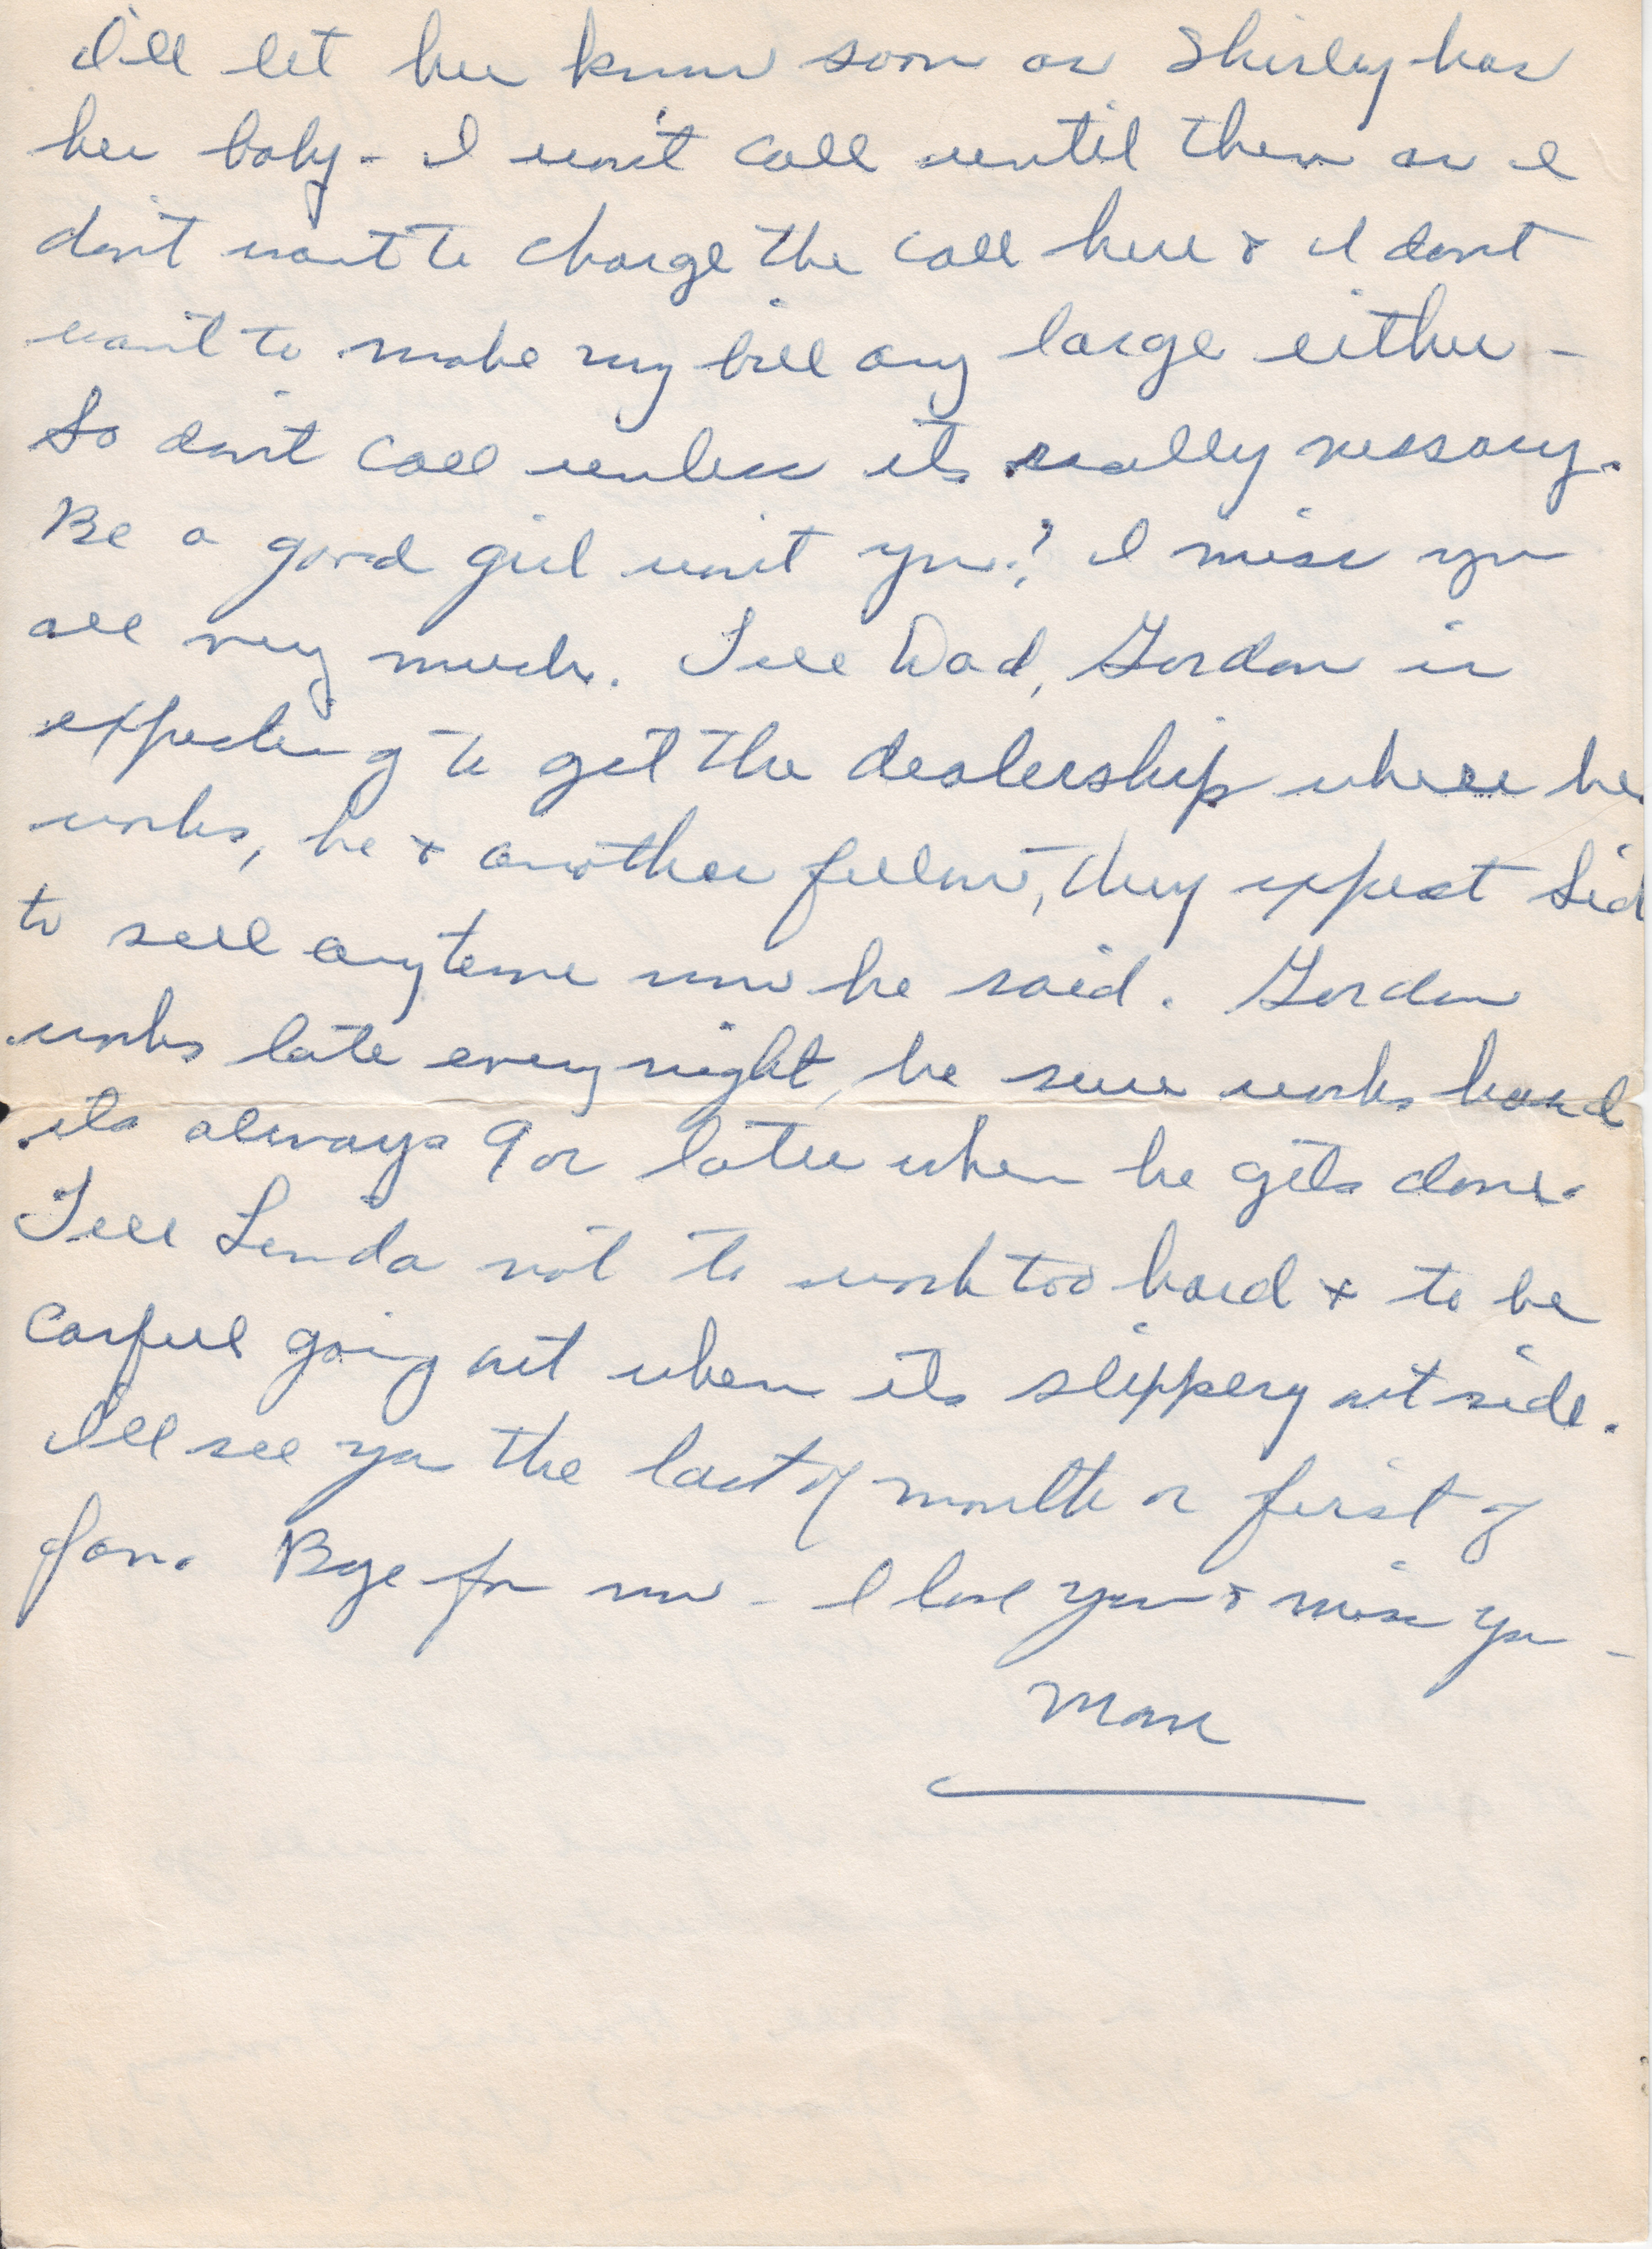 I'll let her know soon as Shirley has
her baby - I won't call until then as I
don't want to charge the call here & I don't
want to make my bill any large either -
So don't call unless its really nessary.
Be a good girl won't you? I miss you
all very much. Tell Dad, Gordon is
expecting to get the dealership where he
works, he & another fellow, they expect Sid
to sell anytime now he said. Gordon
works late every night, he sure works hard
its always 9 or later when he gets done.
Tell Linda not to work too hard & to be
carfull going out when its slippery outside.
I'll see you the last of month or first of
Jan. Bye for now - I love you & miss you -
Mom